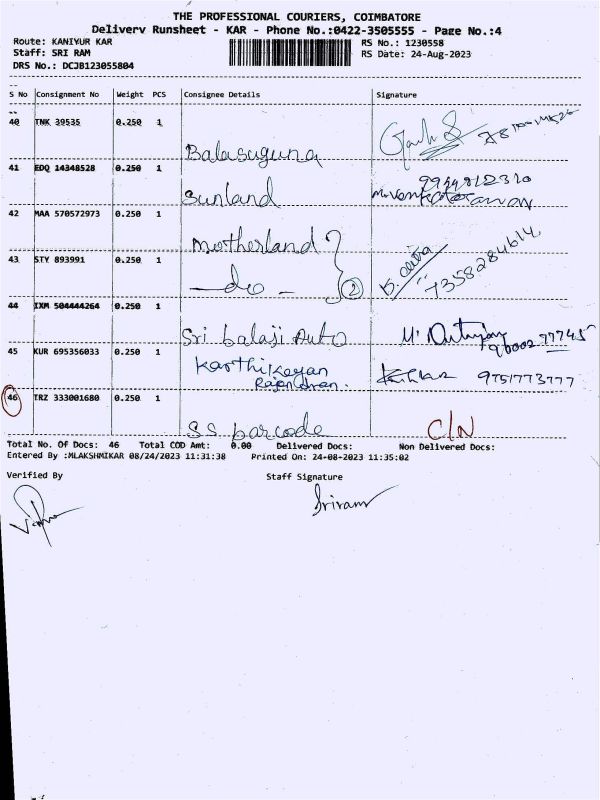 THE PROFESSIONAL COURIERS, COIMBATORE
Delivery Runsheet - KAR - Phone No.:0422-3505555 - Page No.:4
Route: KANIYUR KAR RS No.: 1230558
Staff: SRI RAM RS Date: 24-Aug-2023
DRS No.: DCJB123055804
S No Consignment No Weight PCS Consignee Details Signature
40 TNK 39535 0.250 1
Balasuguna
41 EDQ 14348528 0.250 1
Sunland
42 MAA 570572973 0.250 1
Motherland
43 STY 893991 0.250 1
-do- 2 7358284614
44 IXM 504444264 0.250 1
Sri balaji Auto
45 KUR 695356033 0.250 1
Karthikeyan
Rajendran. 9751773777
46 TRZ 333001680 0.250 1
SS barcode C/N
Total No. Of Docs: 46 Total COD Amt: 0.00 Delivered Docs: Non Delivered Docs:
Entered By :MLAKSHMIKAR 08/24/2023 11:31:38 Printed On: 24-08-2023 11:35:02
Verified By Staff Signature
Sriram